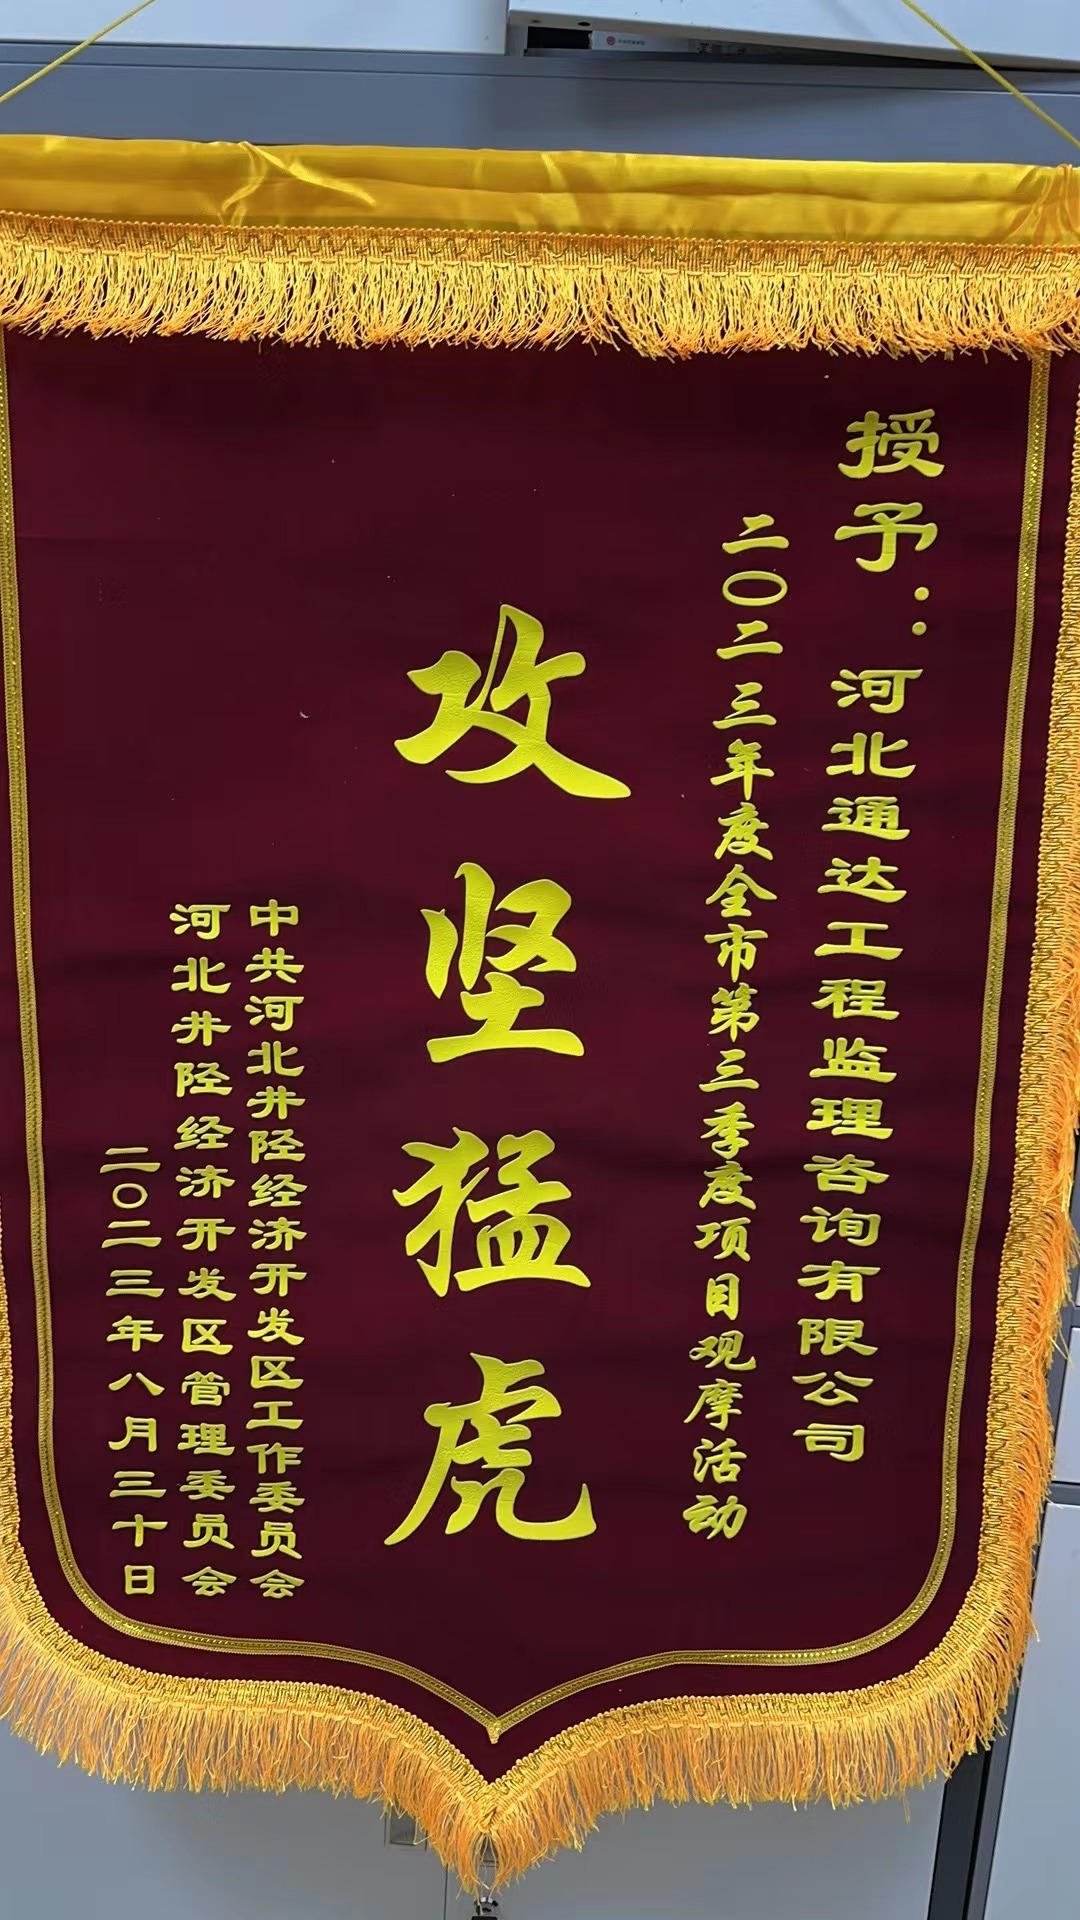 授予：河北通达工程监理咨询有限公司
二〇二三年度全市第三季度项目观摩活动
攻坚猛虎
中共河北井陉经济开发区工作委员会
河北井陉经济开发区管理委员会
二〇二三年八月三十日